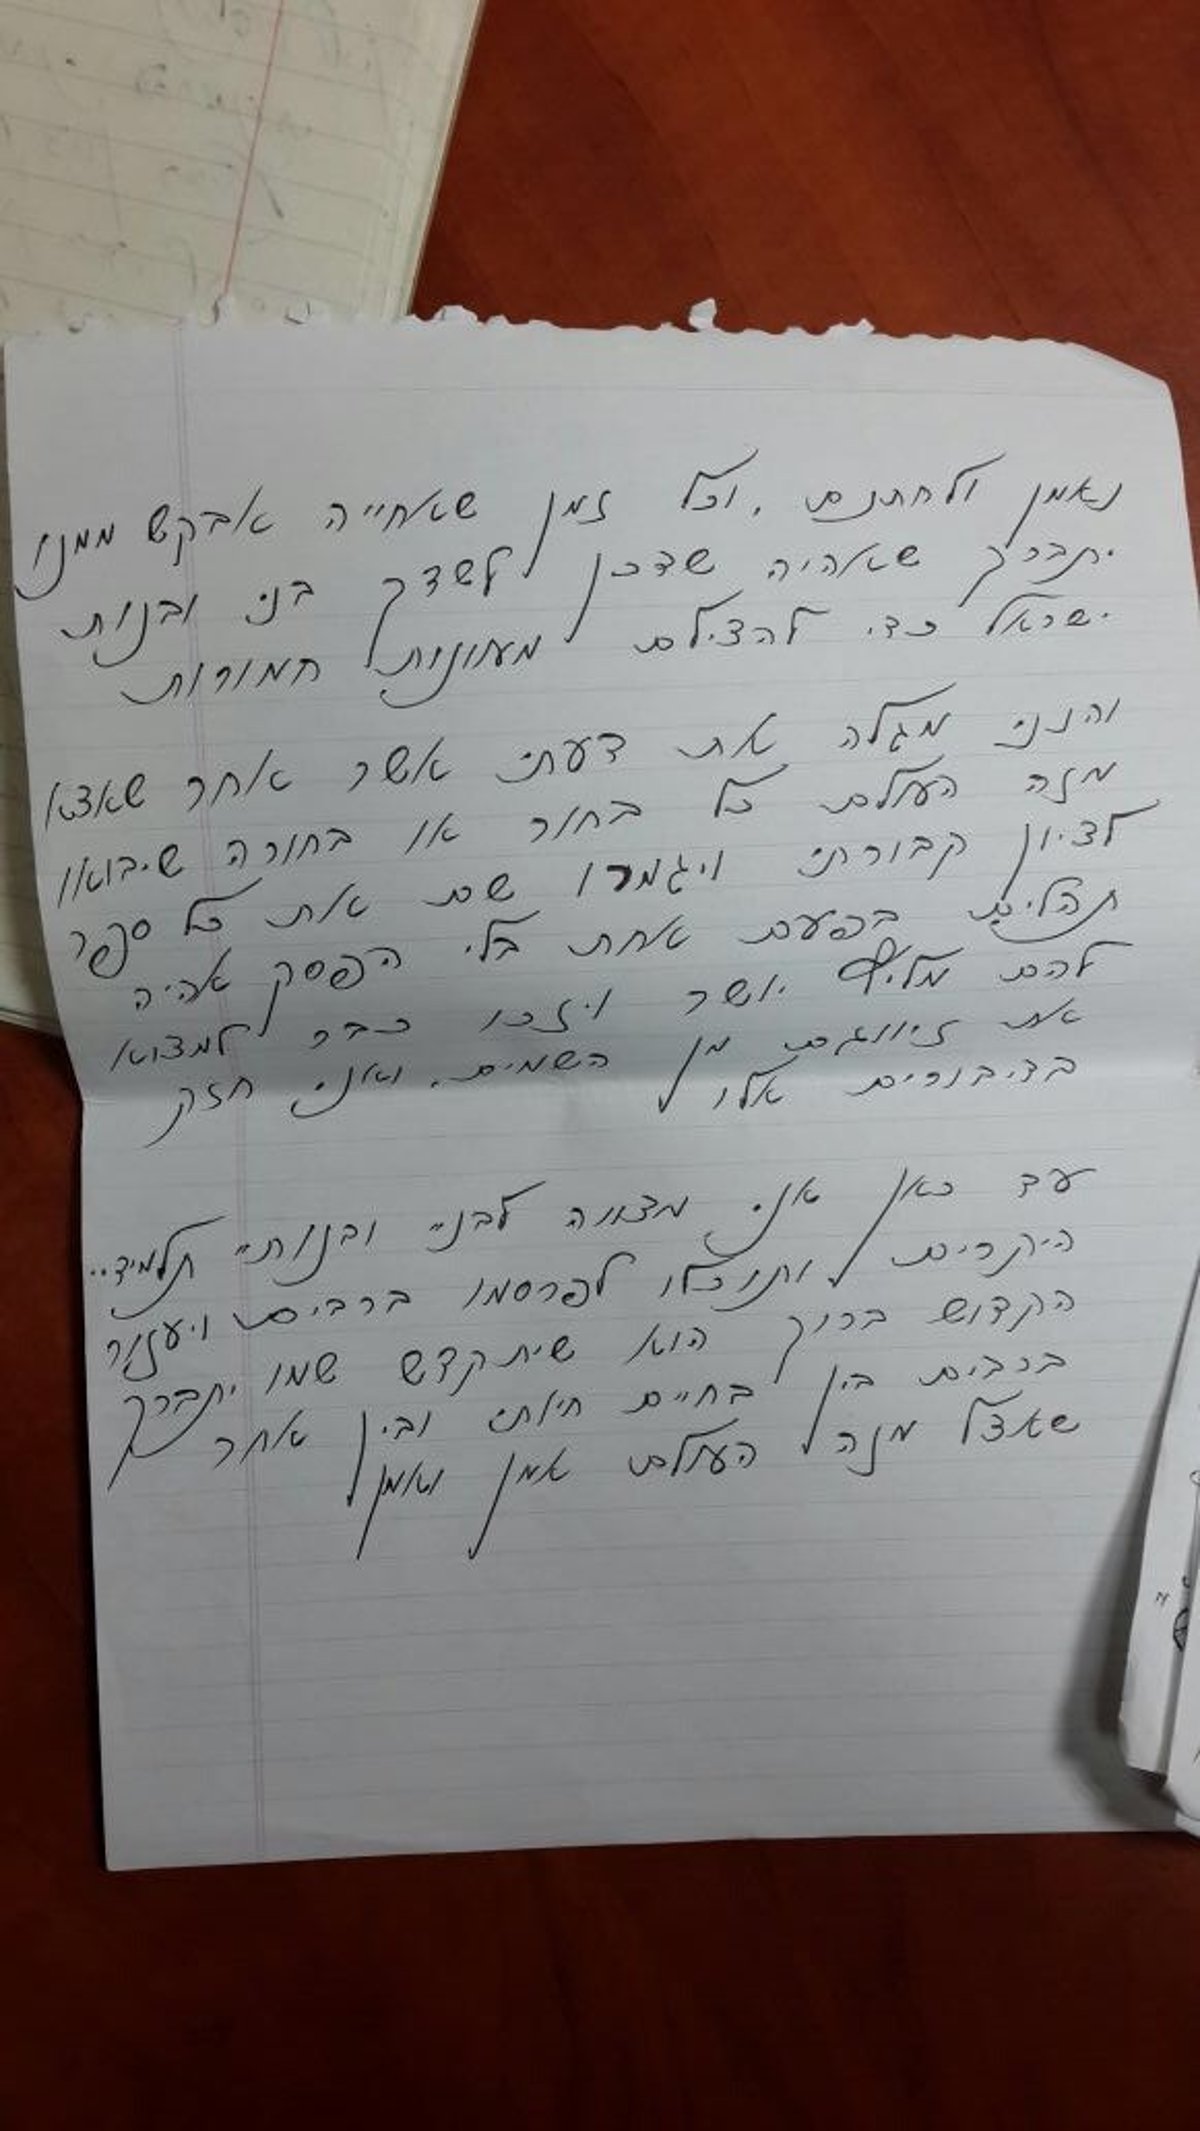 נאמן ולחתנם, וכל זמן שאחייה אבקש ממנו
יתברך שאהיה שדכן לשדך בני ובנות
ישראל כדי להצילם מעוונות חמורות
והנני מגלה את דעתי אשר אחר שאצא
מזה העולם כל בחור או בחורה שיבואו
לציון קבורתי ויגמרו שם את כל ספר
תהלים בפעם אחת בלי הפסק אהיה
להם מליץ יושר ויזכו כבר למצוא
את זיווגם מן השמים. ואני חזק
בדיבורים אלו
עד כאן אני מצווה לבניי ובנותיי תלמידי..
היקרים ותוכלו לפרסמו ברבים ויעזור
הקדוש ברוך הוא שיתקדש שמו יתברך
ברבים בין בחיים חיותי ובין אחר
שאצא מזה העולם אמן ואמן